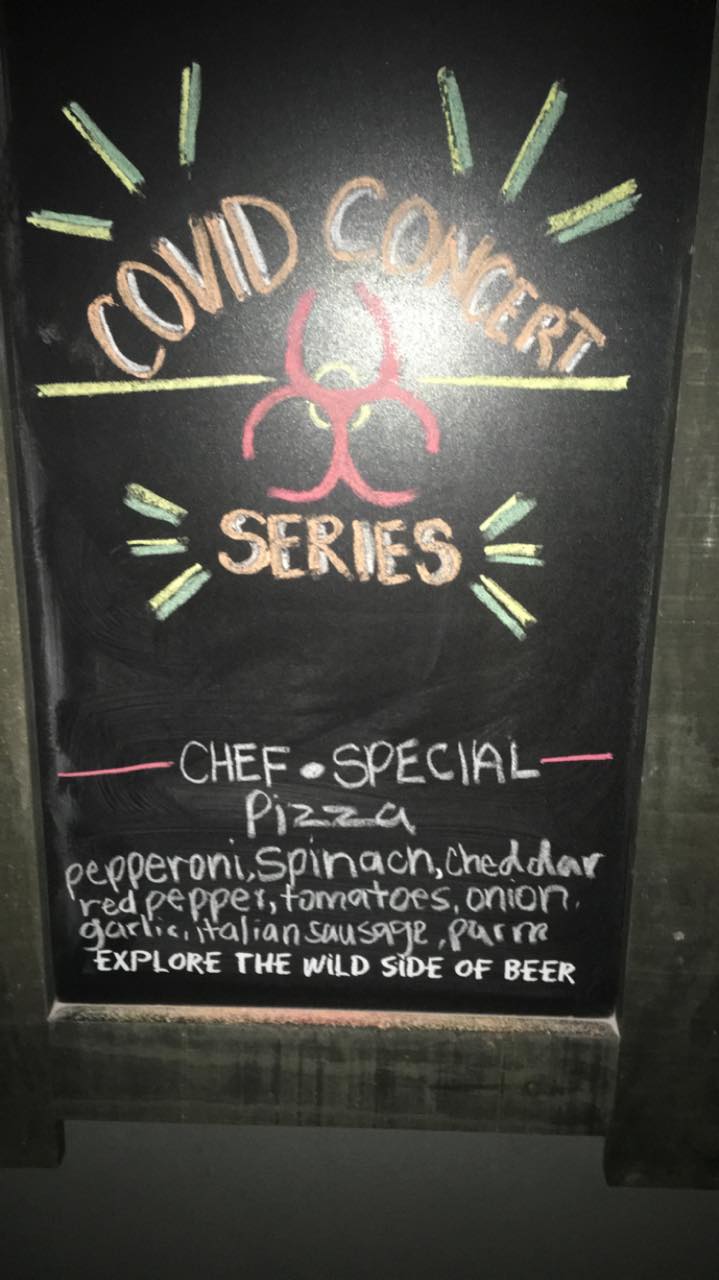 COVID CONCERT
SERIES
CHEF • SPECIAL
Pizza
pepperoni, Spinach, Cheddar
red pepper, tomatoes, onion,
garlic, italian sausage, parm
EXPLORE THE WiLD SiDE OF BEER